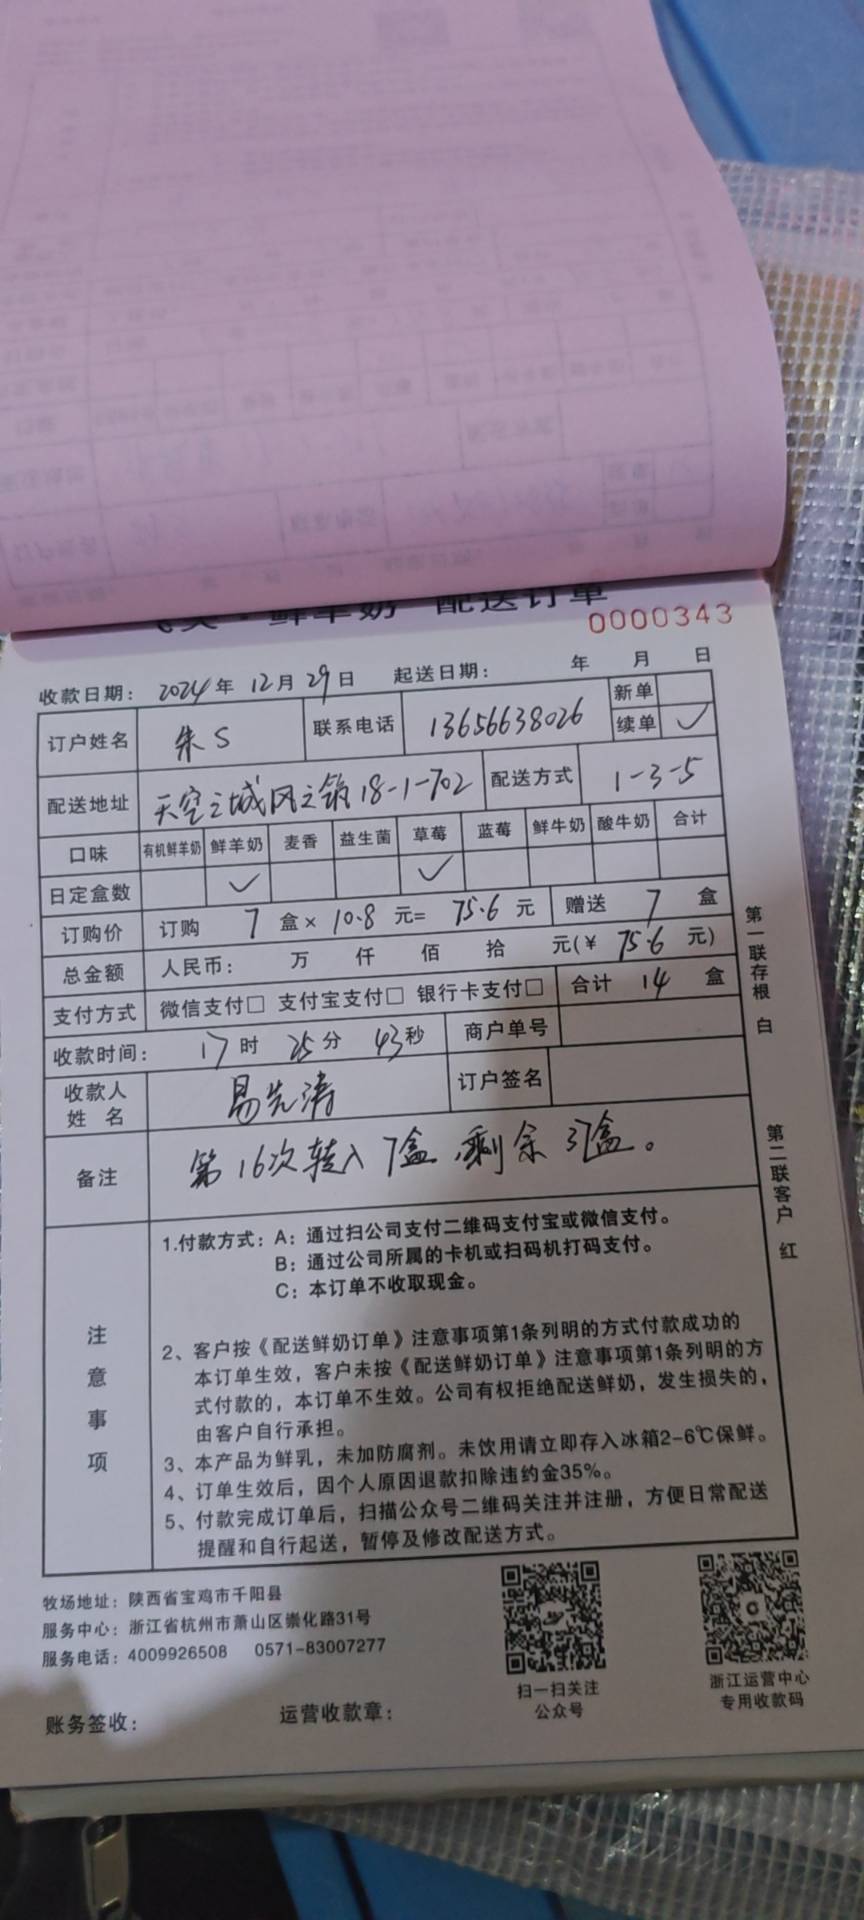 鲜羊奶 配送订单
0000343
收款日期: 2024年 12月 29日 起送日期: 年 月 日
订户姓名 朱S 联系电话 13656638026 新单
续单 ✓
配送地址 天空之城风之筑18-1-702 配送方式 1-3-5
口味 有机鲜羊奶 鲜羊奶 麦香 益生菌 草莓 蓝莓 鲜牛奶 酸牛奶 合计
日定盒数 ✓ ✓
订购价 订购 7 盒× 10.8 元= 75.6 元 赠送 7 盒
总金额 人民币: 万 仟 佰 拾 元(¥ 75.6 元)
支付方式 微信支付□ 支付宝支付□ 银行卡支付□ 合计 14 盒
收款时间: 17时 25分 43秒 商户单号
收款人姓名 易先涛 订户签名
备注 第16次转入7盒,剩余37盒。
注意事项
1.付款方式: A: 通过扫公司支付二维码支付宝或微信支付。
B: 通过公司所属的卡机或扫码机打码支付。
C: 本订单不收取现金。
2、客户按《配送鲜奶订单》注意事项第1条列明的方式付款成功的
本订单生效,客户未按《配送鲜奶订单》注意事项第1条列明的方
式付款的,本订单不生效。公司有权拒绝配送鲜奶,发生损失的,
由客户自行承担。
3、本产品为鲜乳,未加防腐剂。未饮用请立即存入冰箱2-6℃保鲜。
4、订单生效后,因个人原因退款扣除违约金35%。
5、付款完成订单后,扫描公众号二维码关注并注册,方便日常配送
提醒和自行起送,暂停及修改配送方式。
第一联存根 白
第二联客户 红
牧场地址: 陕西省宝鸡市千阳县
服务中心: 浙江省杭州市萧山区崇化路31号
服务电话: 4009926508 0571-83007277
扫一扫关注
公众号
浙江运营中心
专用收款码
账务签收:
运营收款章: